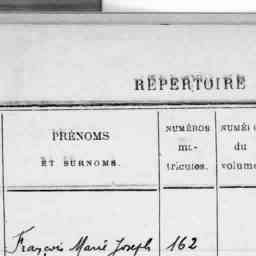 RÉPERTOIRE
PRÉNOMS
ET SURNOMS.
NUMÉROS
ma-
tricules.
NUMÉ
du
volume
François Marie Joseph 162